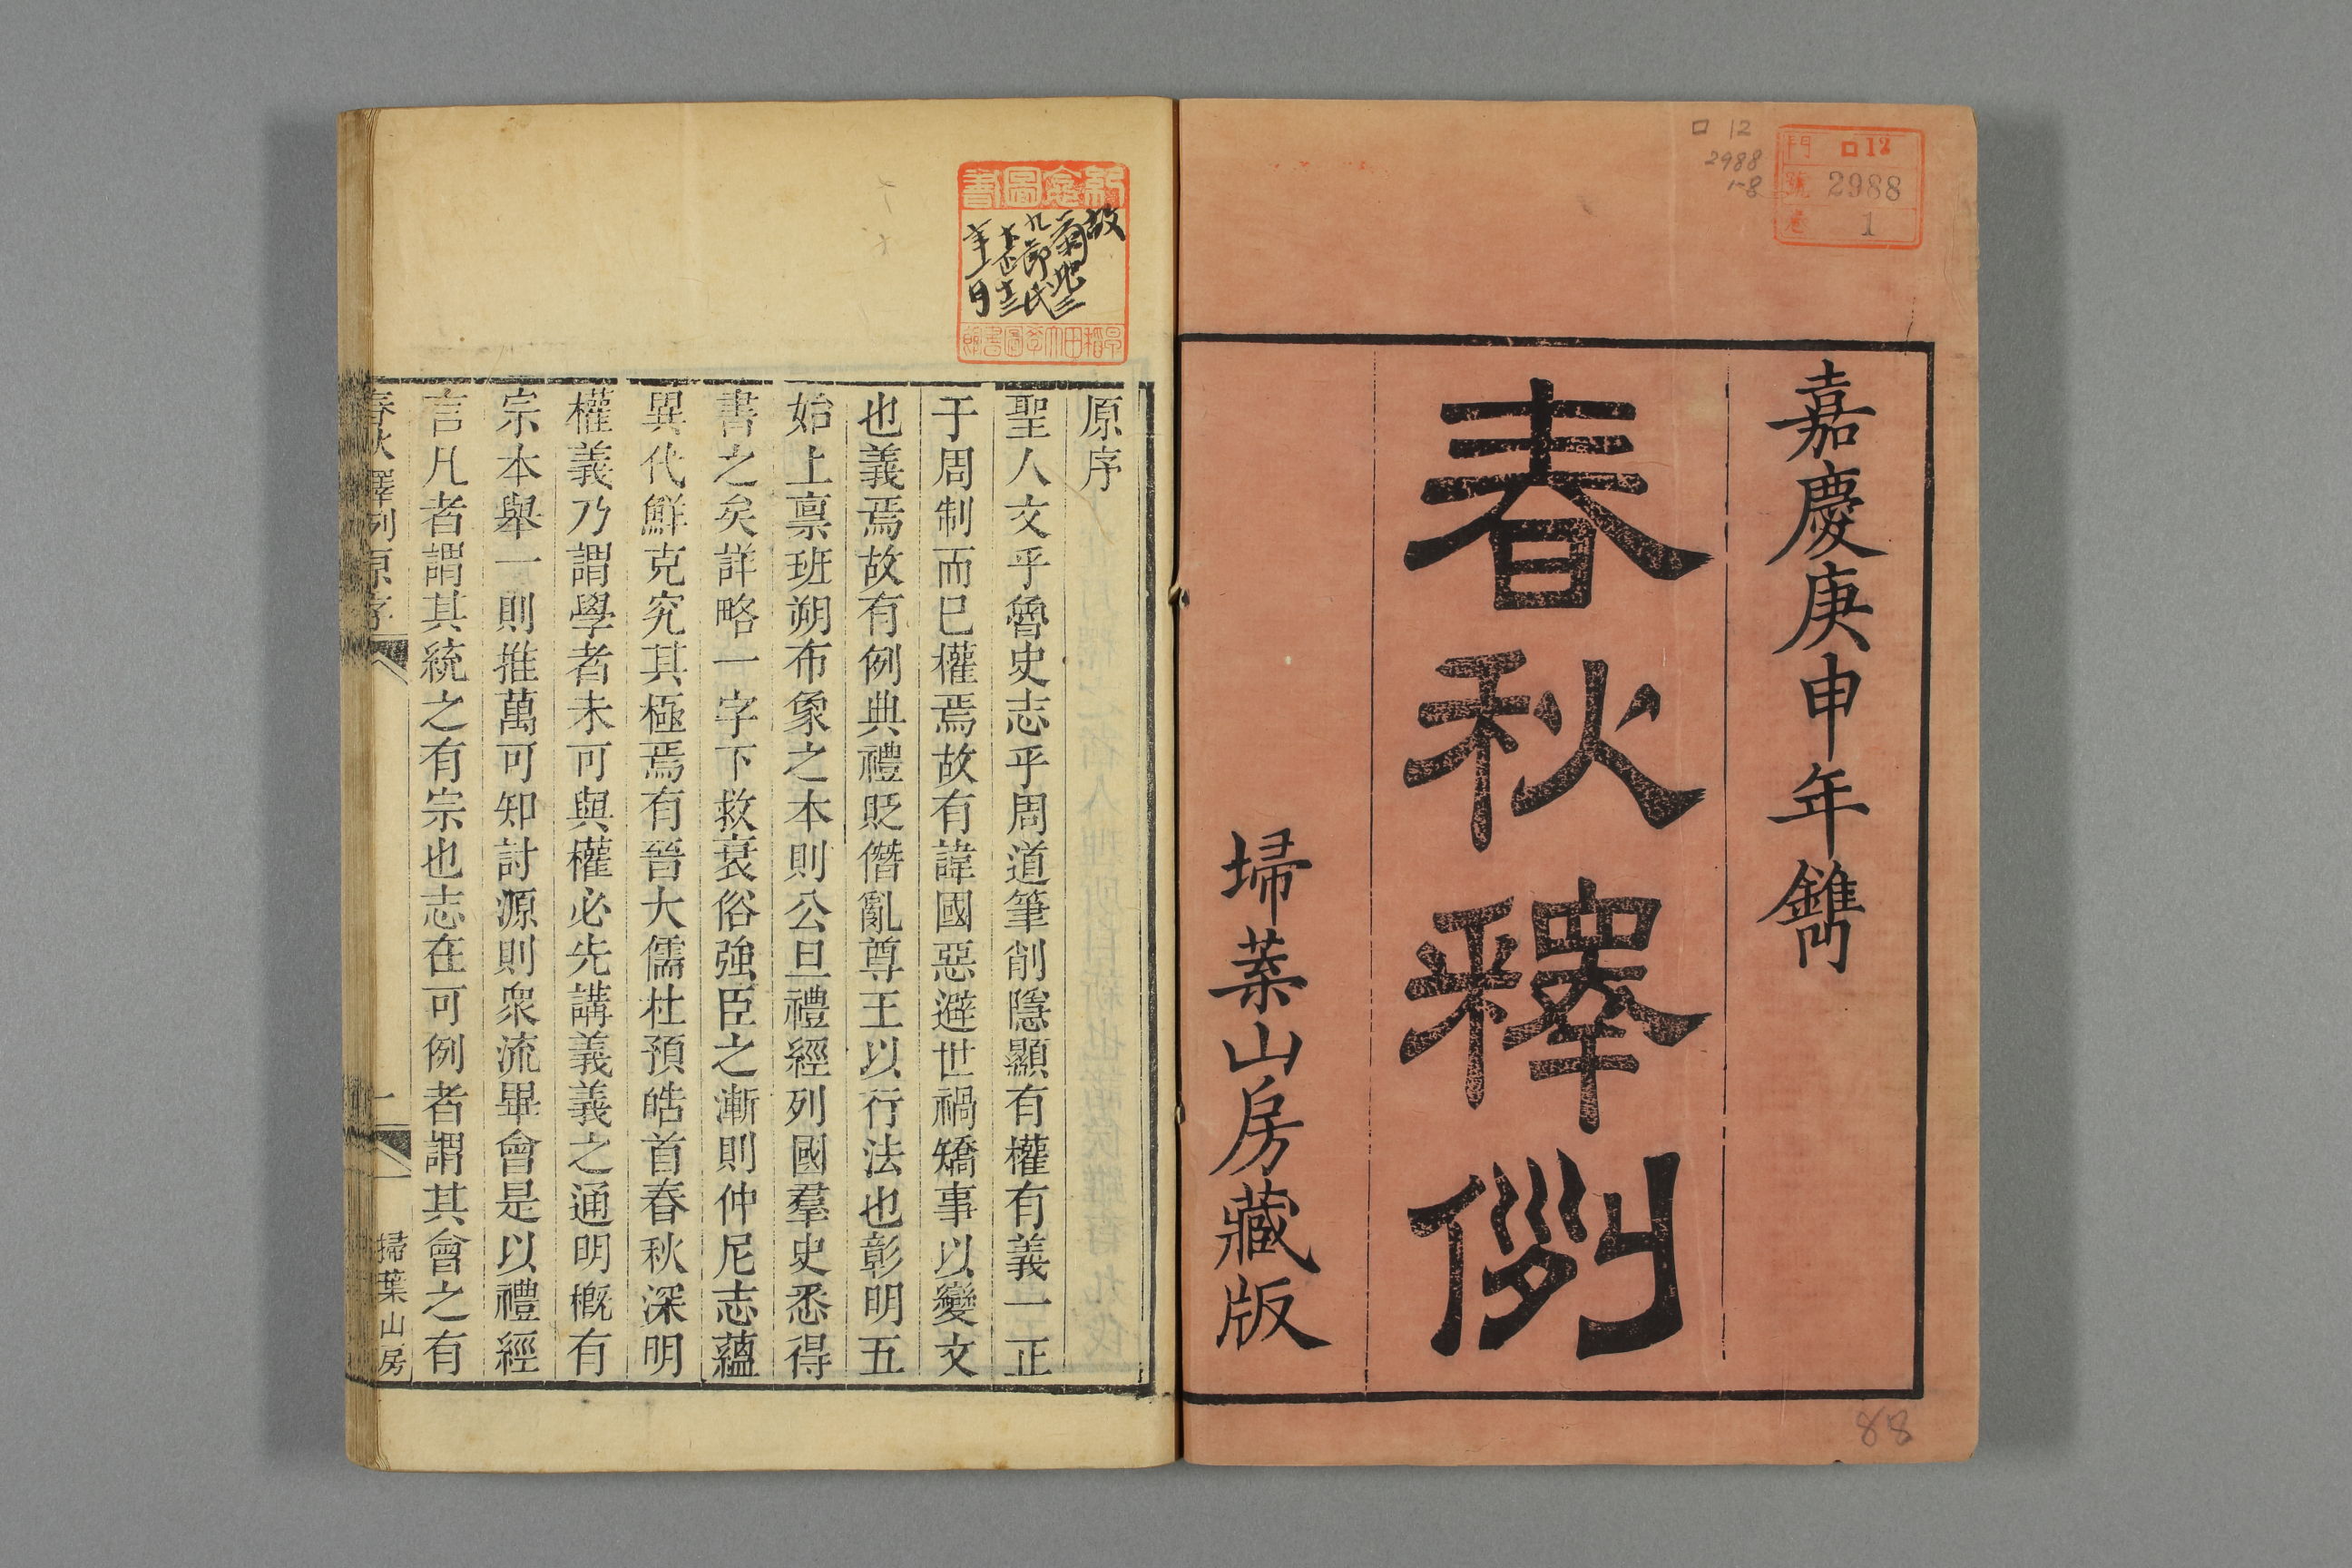 嘉慶庚申年鐫
春秋釋例
埽葉山房藏版
門 ロ12
號 2988
卷 1
ロ 12
2988
1-8
88
紀念圖書
故
菊池三
九郎氏
大正十三
年一月
早稻田大學圖書館
原序
聖人文乎魯史志乎周道筆削隱顯有權有義一正
于周制而已權焉故有諱國惡避世禍矯事以變文
也義焉故有例典禮貶僭亂尊王以行法也彰明五
始上禀班朔布象之本則公旦禮經列國羣史悉得
書之矣詳略一字下救衰俗強臣之漸則仲尼志蘊
異代鮮克究其極焉有晉大儒杜預皓首春秋深明
權義乃謂學者未可與權必先講義義之通明槪有
宗本舉一則推萬可知討源則衆流畢會是以禮經
言凡者謂其統之有宗也志在可例者謂其會之有
春秋釋例原序
一
掃葉山房